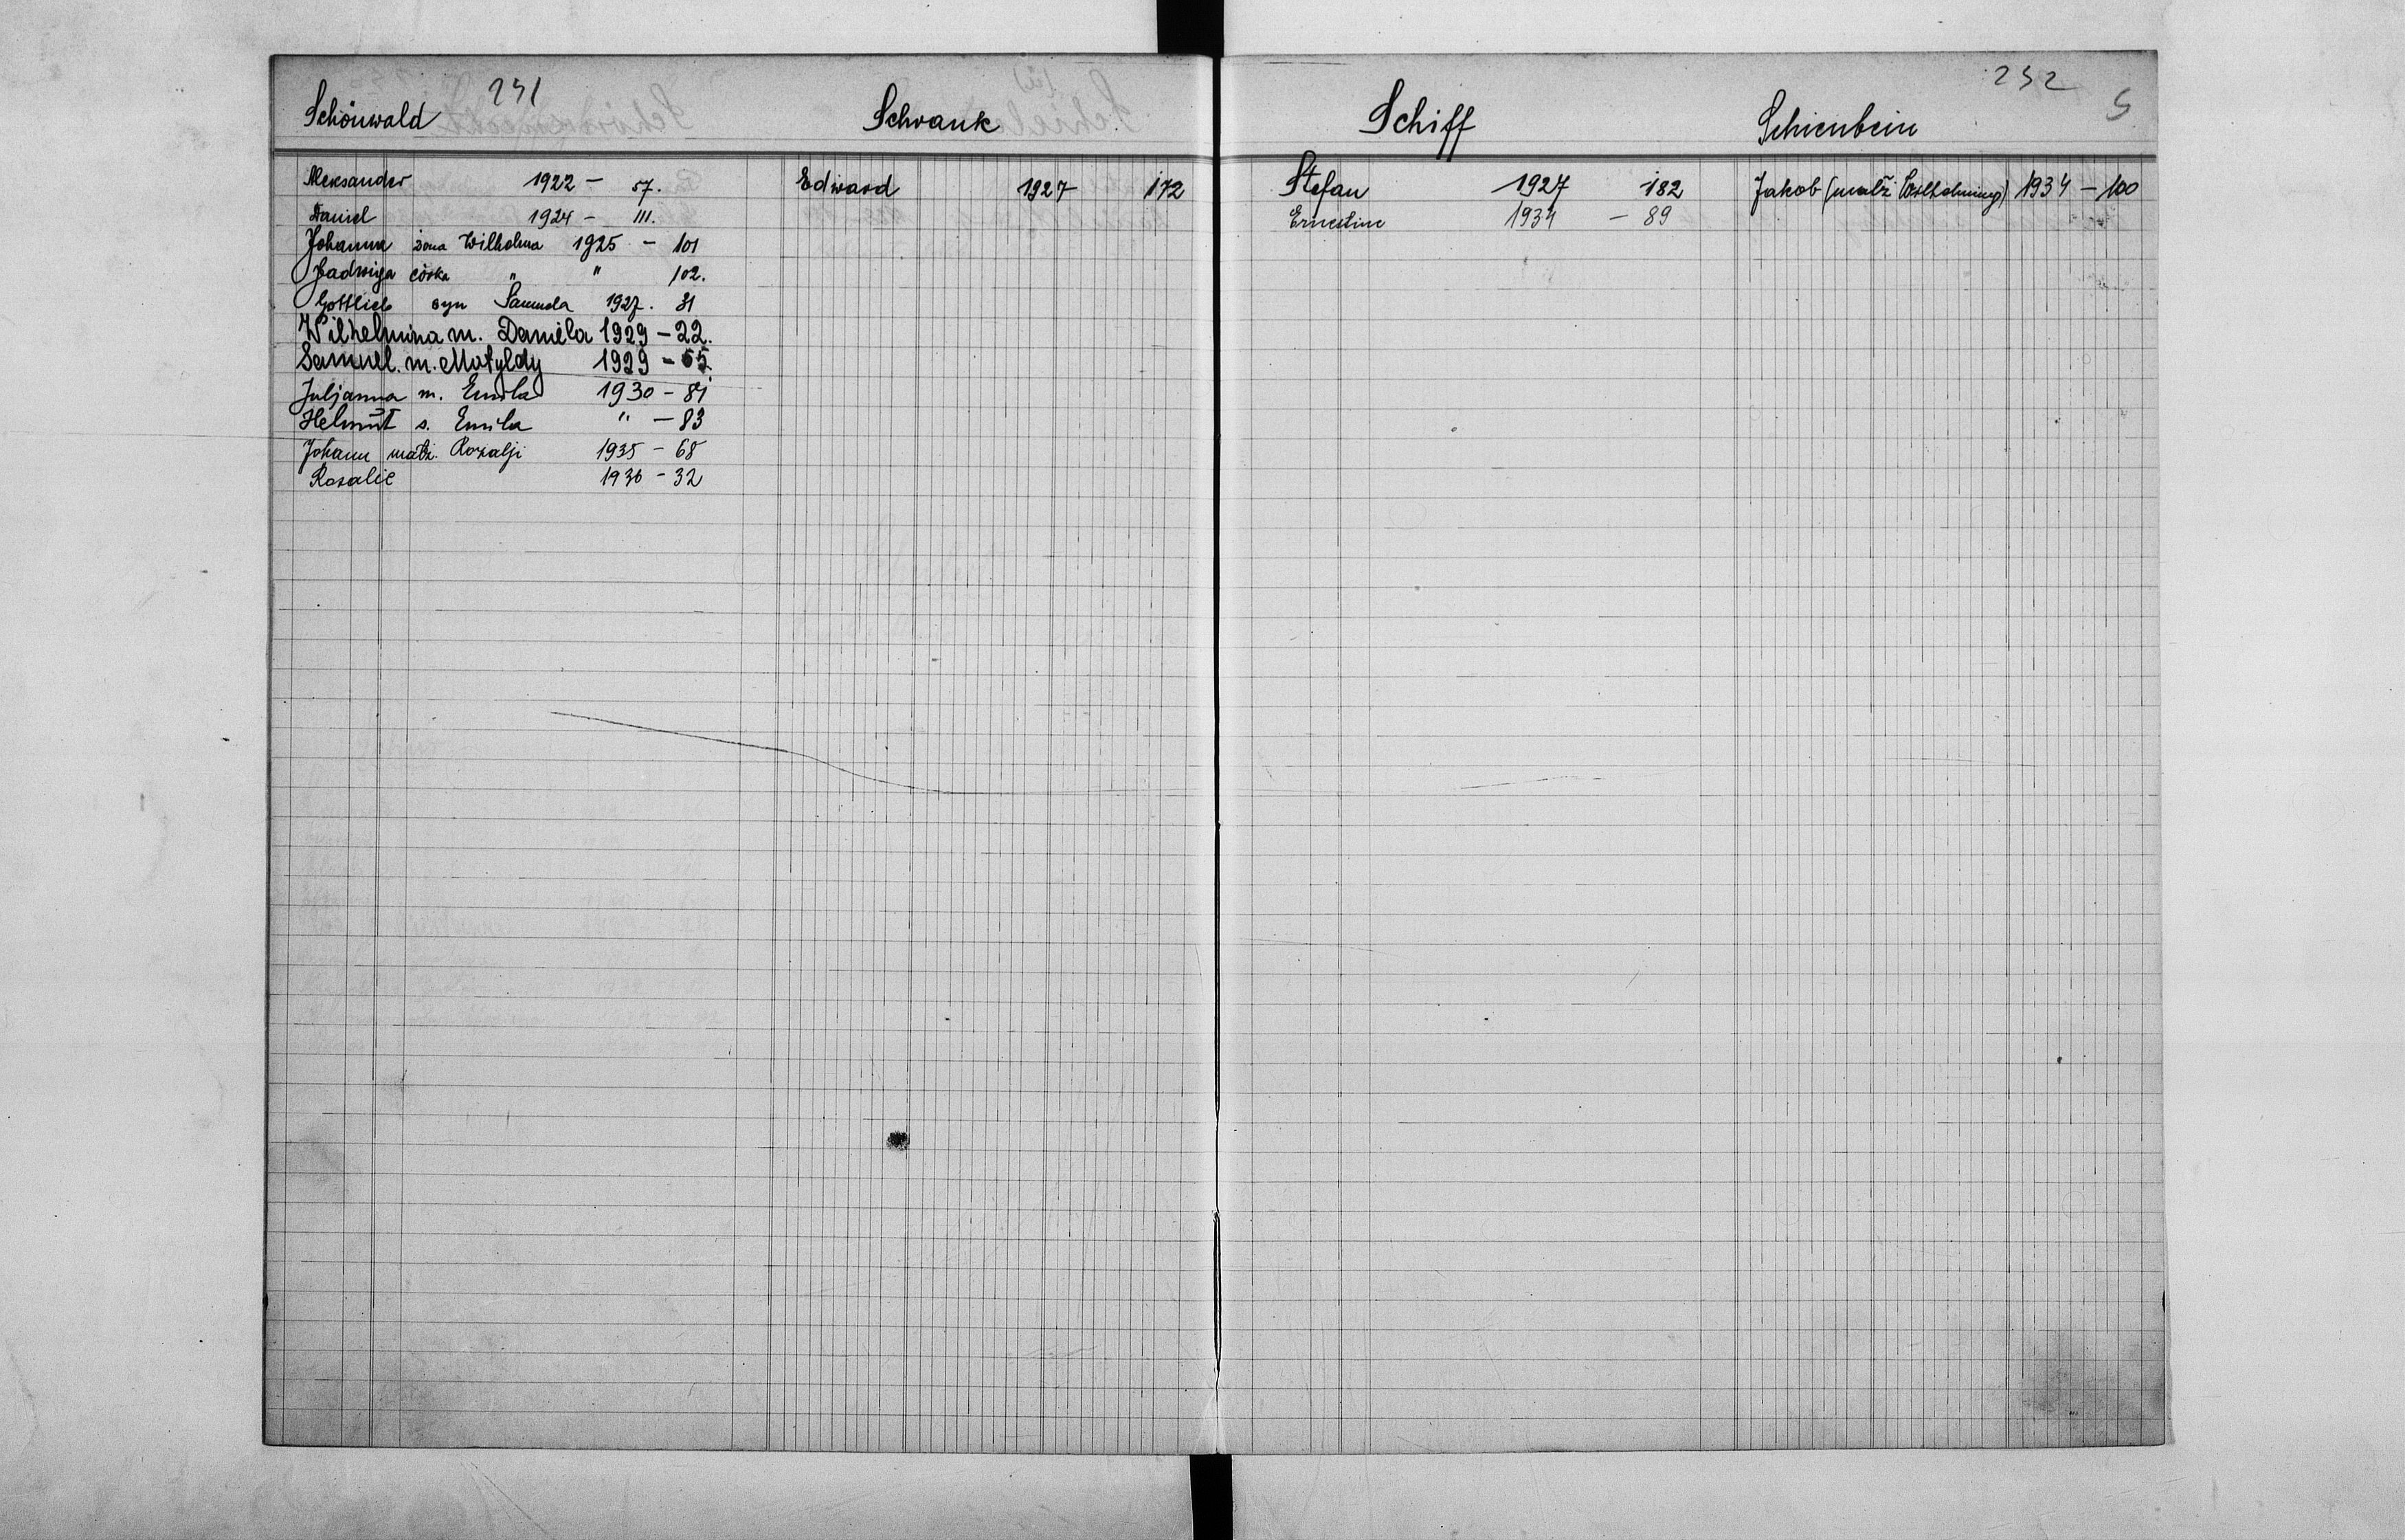 231
Schönwald
Aleksander 1922 - 57.
Daniel 1924 - 111.
Johanna żona Wilhelma 1925 - 101
Jadwiga córka " " 102.
Gottlieb syn Samuela 1927. 31
Wilhelmina m. Daniela 1929 - 22.
Samuel. m. Matyldy 1929 - 55.
Juljanna m. Emila 1930 - 81
Helmut s. Emila " - 83
Johann małż. Rozalji 1935 - 68
Rosalie 1936 - 32
Schrank
Edward 1927 172
232
S
Schiff
Stefan 1927 182
Ernestine 1934 - 89
Schienbein
Jakob (małż. 1934 - 100